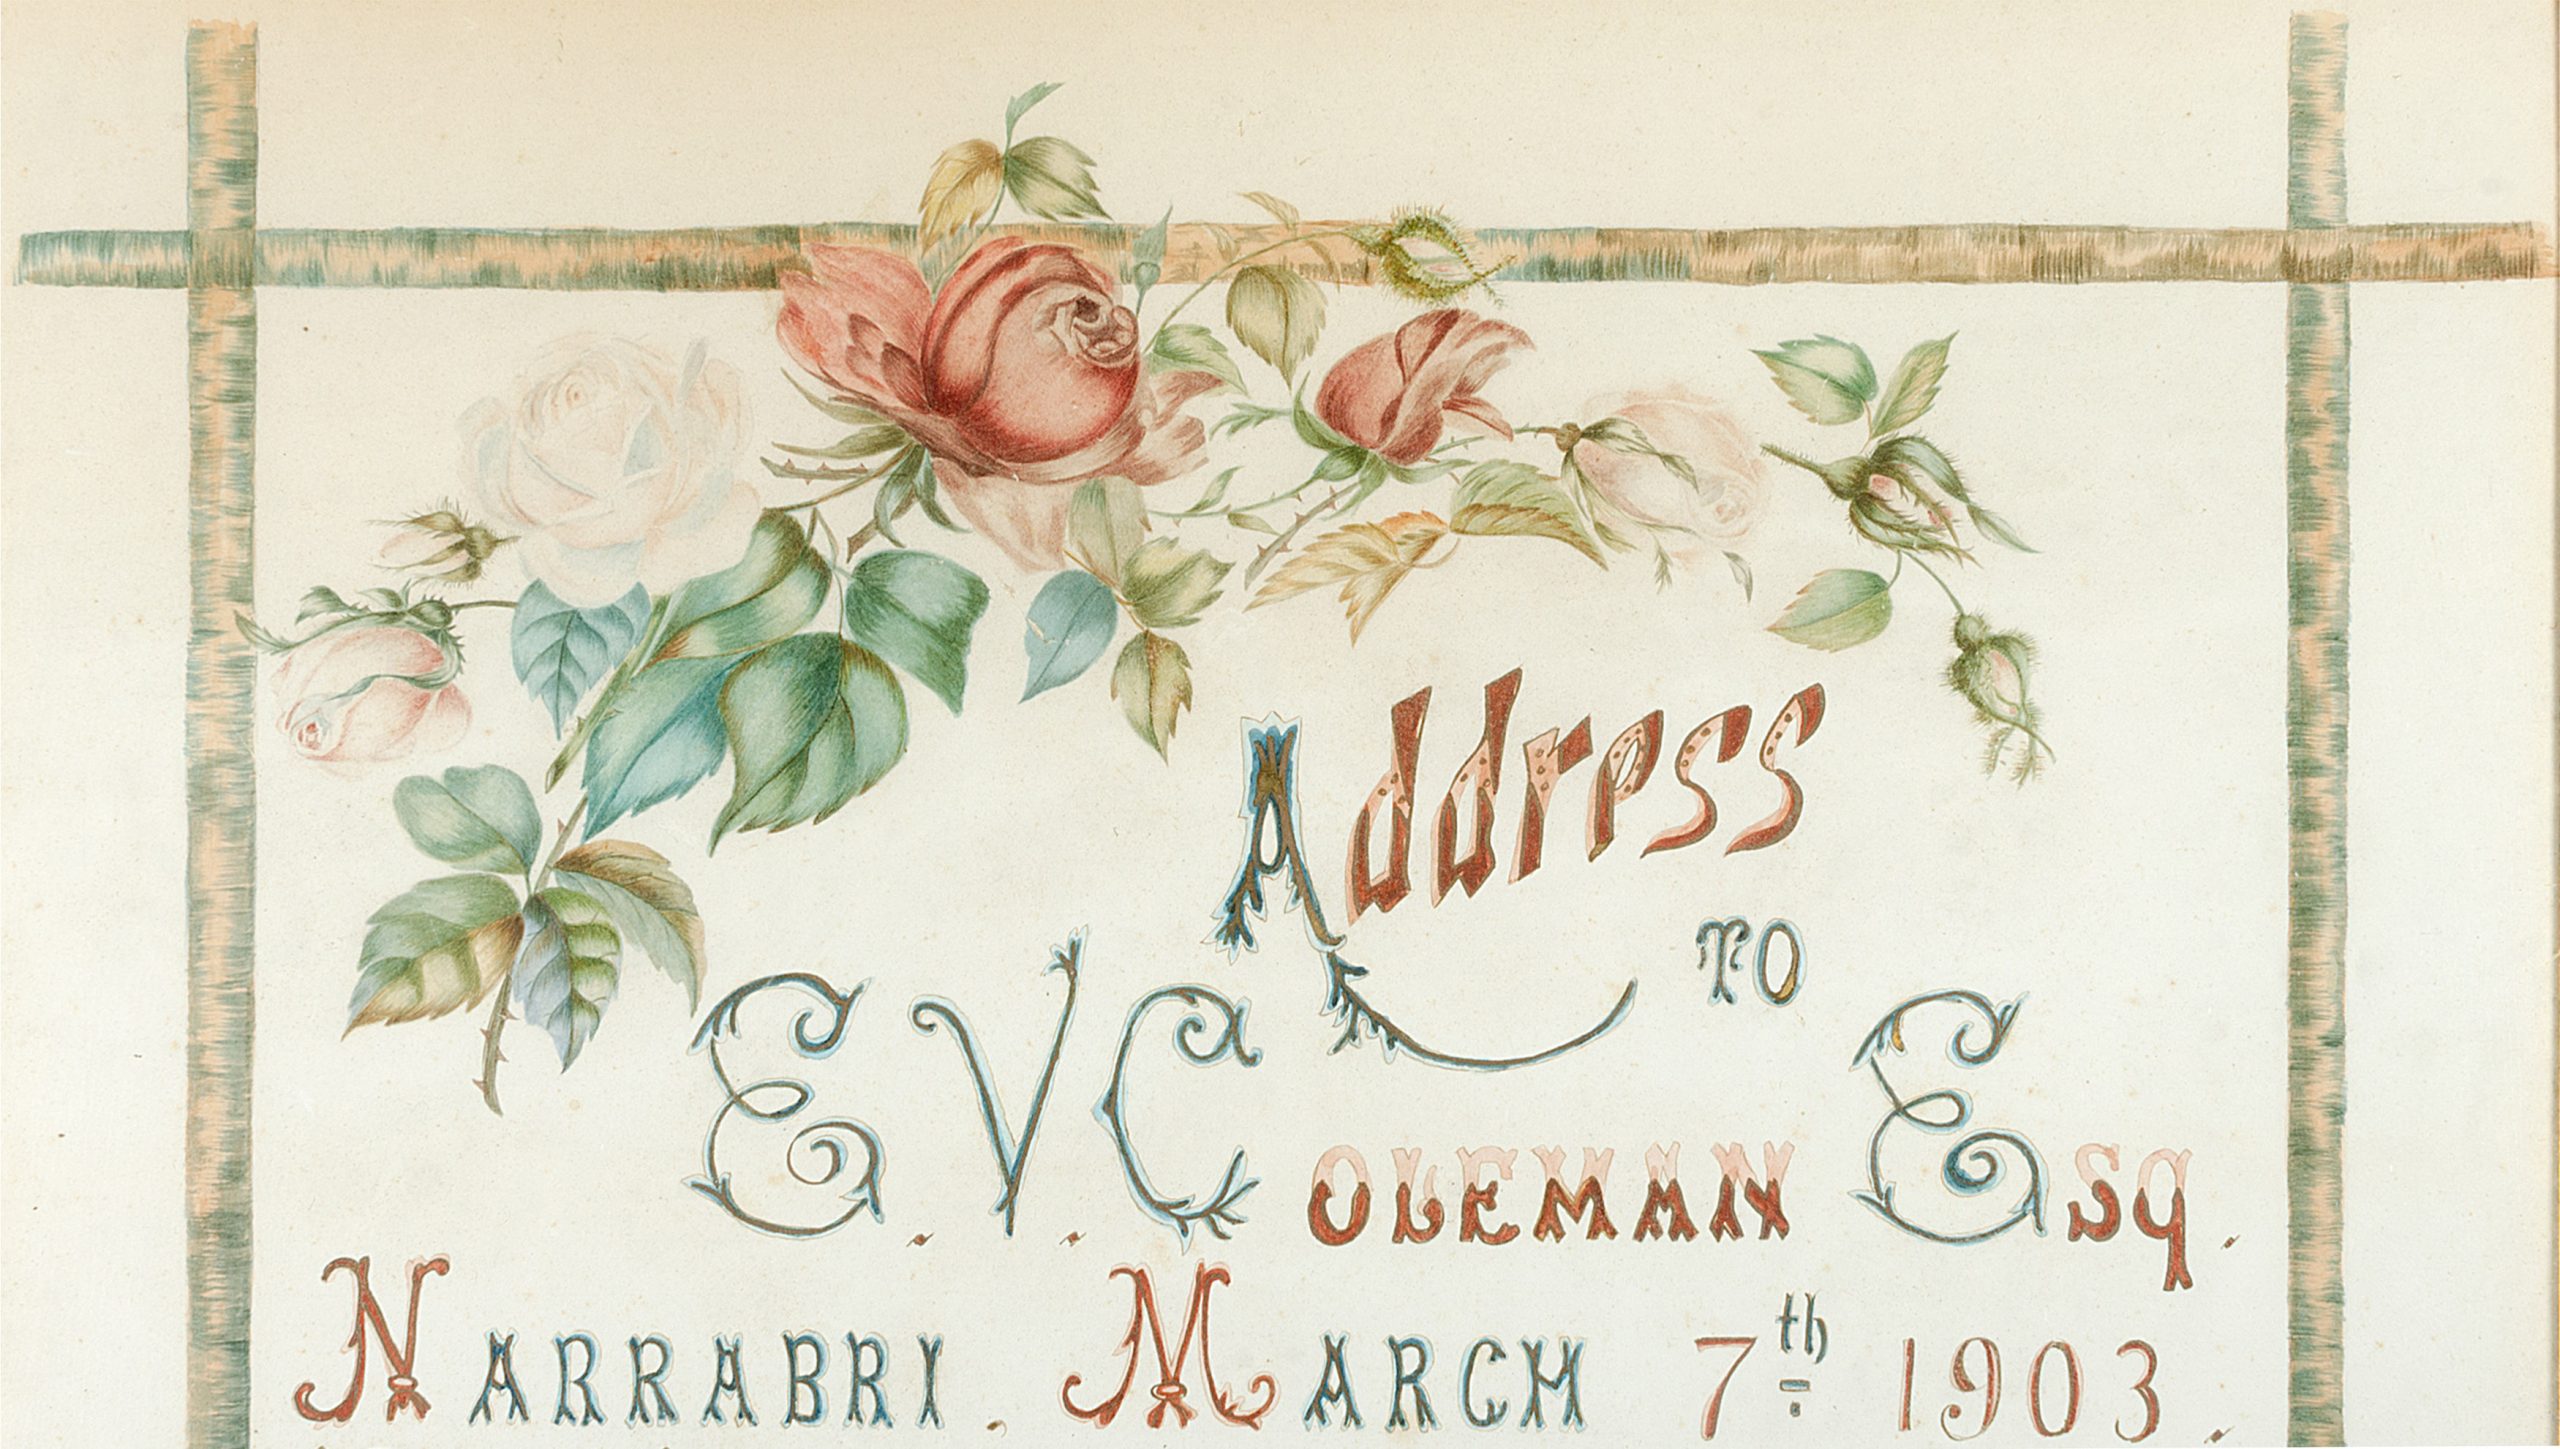 Address
TO
E. V. COLEMAN ESQ.
NARRABRI. MARCH 7th 1903.